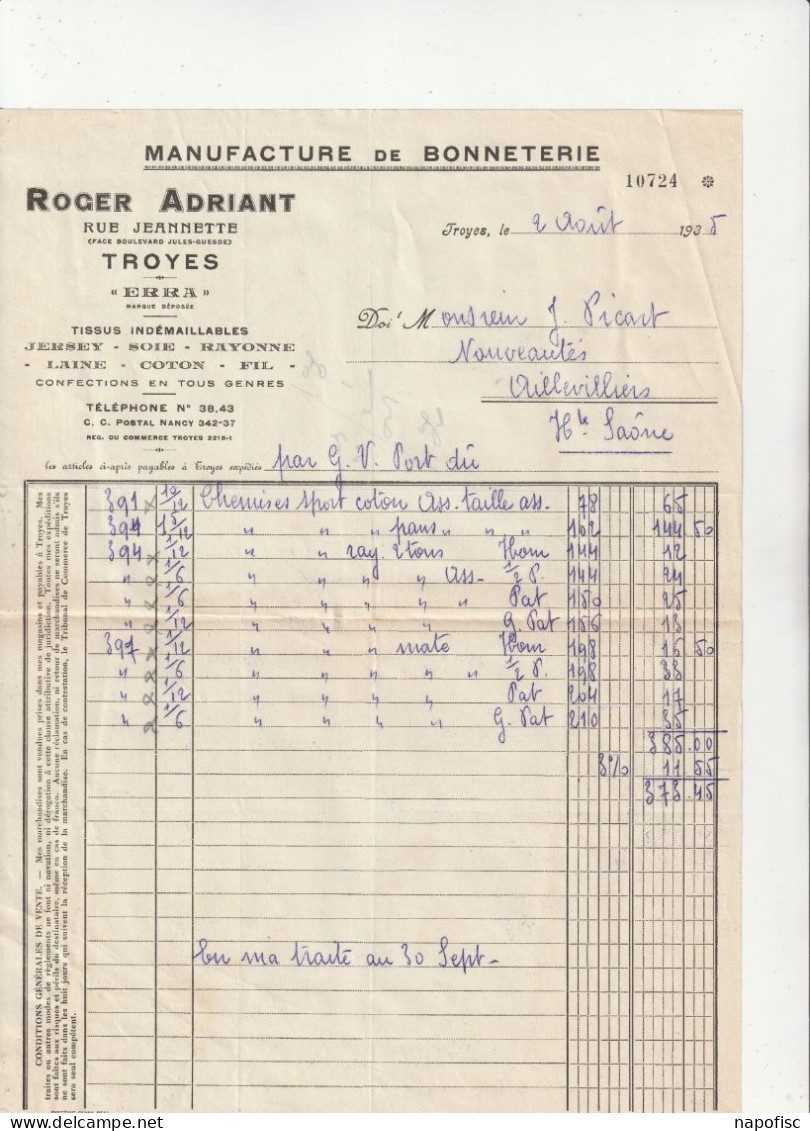 MANUFACTURE DE BONNETERIE
10724
ROGER ADRIANT
RUE JEANNETTE
(FACE BOULEVARD JULES-GUESDE)
TROYES
« ERRA »
MARQUE DÉPOSÉE
TISSUS INDÉMAILLABLES
JERSEY - SOIE - RAYONNE
- LAINE - COTON - FIL -
CONFECTIONS EN TOUS GENRES
TÉLÉPHONE N° 38.43
C. C. POSTAL NANCY 342-37
REG. DU COMMERCE TROYES 2215-1
Troyes, le 2 Août 1935
Doit Monsieur J. Picart
Nouveautés
Aillevilliers
Hte Saône
les articles ci-après payables à Troyes expédiés par G. V. Port dû
391 x 10/12 Chemises sport coton Ass. taille ass. 78 65
394 " " " pans " " " 102 144 50
394 x 1/12 " " ray. 2 tons Hom 144 12
" x 1/6 " " " " Ass- 1/2 P. 144 24
" x 1/6 " " " " " Pat 150 25
" x 1/12 " " " " G. Pat 156 13
397 x 1/12 " " " mate Hom 198 16 50
" x 1/6 " " " " " 1/2 P. 198 33
" x 1/12 " " " " Pat 204 17
" x 1/6 " " " " G. Pat 210 35
385.00
3% 11.55
373.45
En ma traite au 30 Sept-
CONDITIONS GÉNÉRALES DE VENTE. — Mes marchandises sont vendues prises dans mes magasins et payables à Troyes. Mes
traites ou autres modes de règlements ne font ni novation, ni dérogation à cette clause attributive de juridiction. Toutes mes expéditions
sont faites aux risques et périls du destinataire, même en cas de franco. Aucune réclamation, ni retour de marchandises ne seront admis s'ils
ne sont faits dans les huit jours qui suivent la réception de la marchandise. En cas de contestation, le Tribunal de Commerce de Troyes
sera seul compétent.
delcampe.net
napofisc